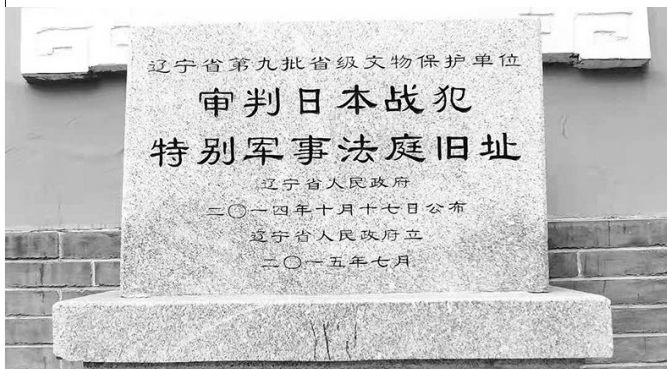 辽宁省第九批省级文物保护单位
审判日本战犯
特别军事法庭旧址
辽宁省人民政府
二〇一四年十月十七日公布
辽宁省人民政府立
二〇一五年七月